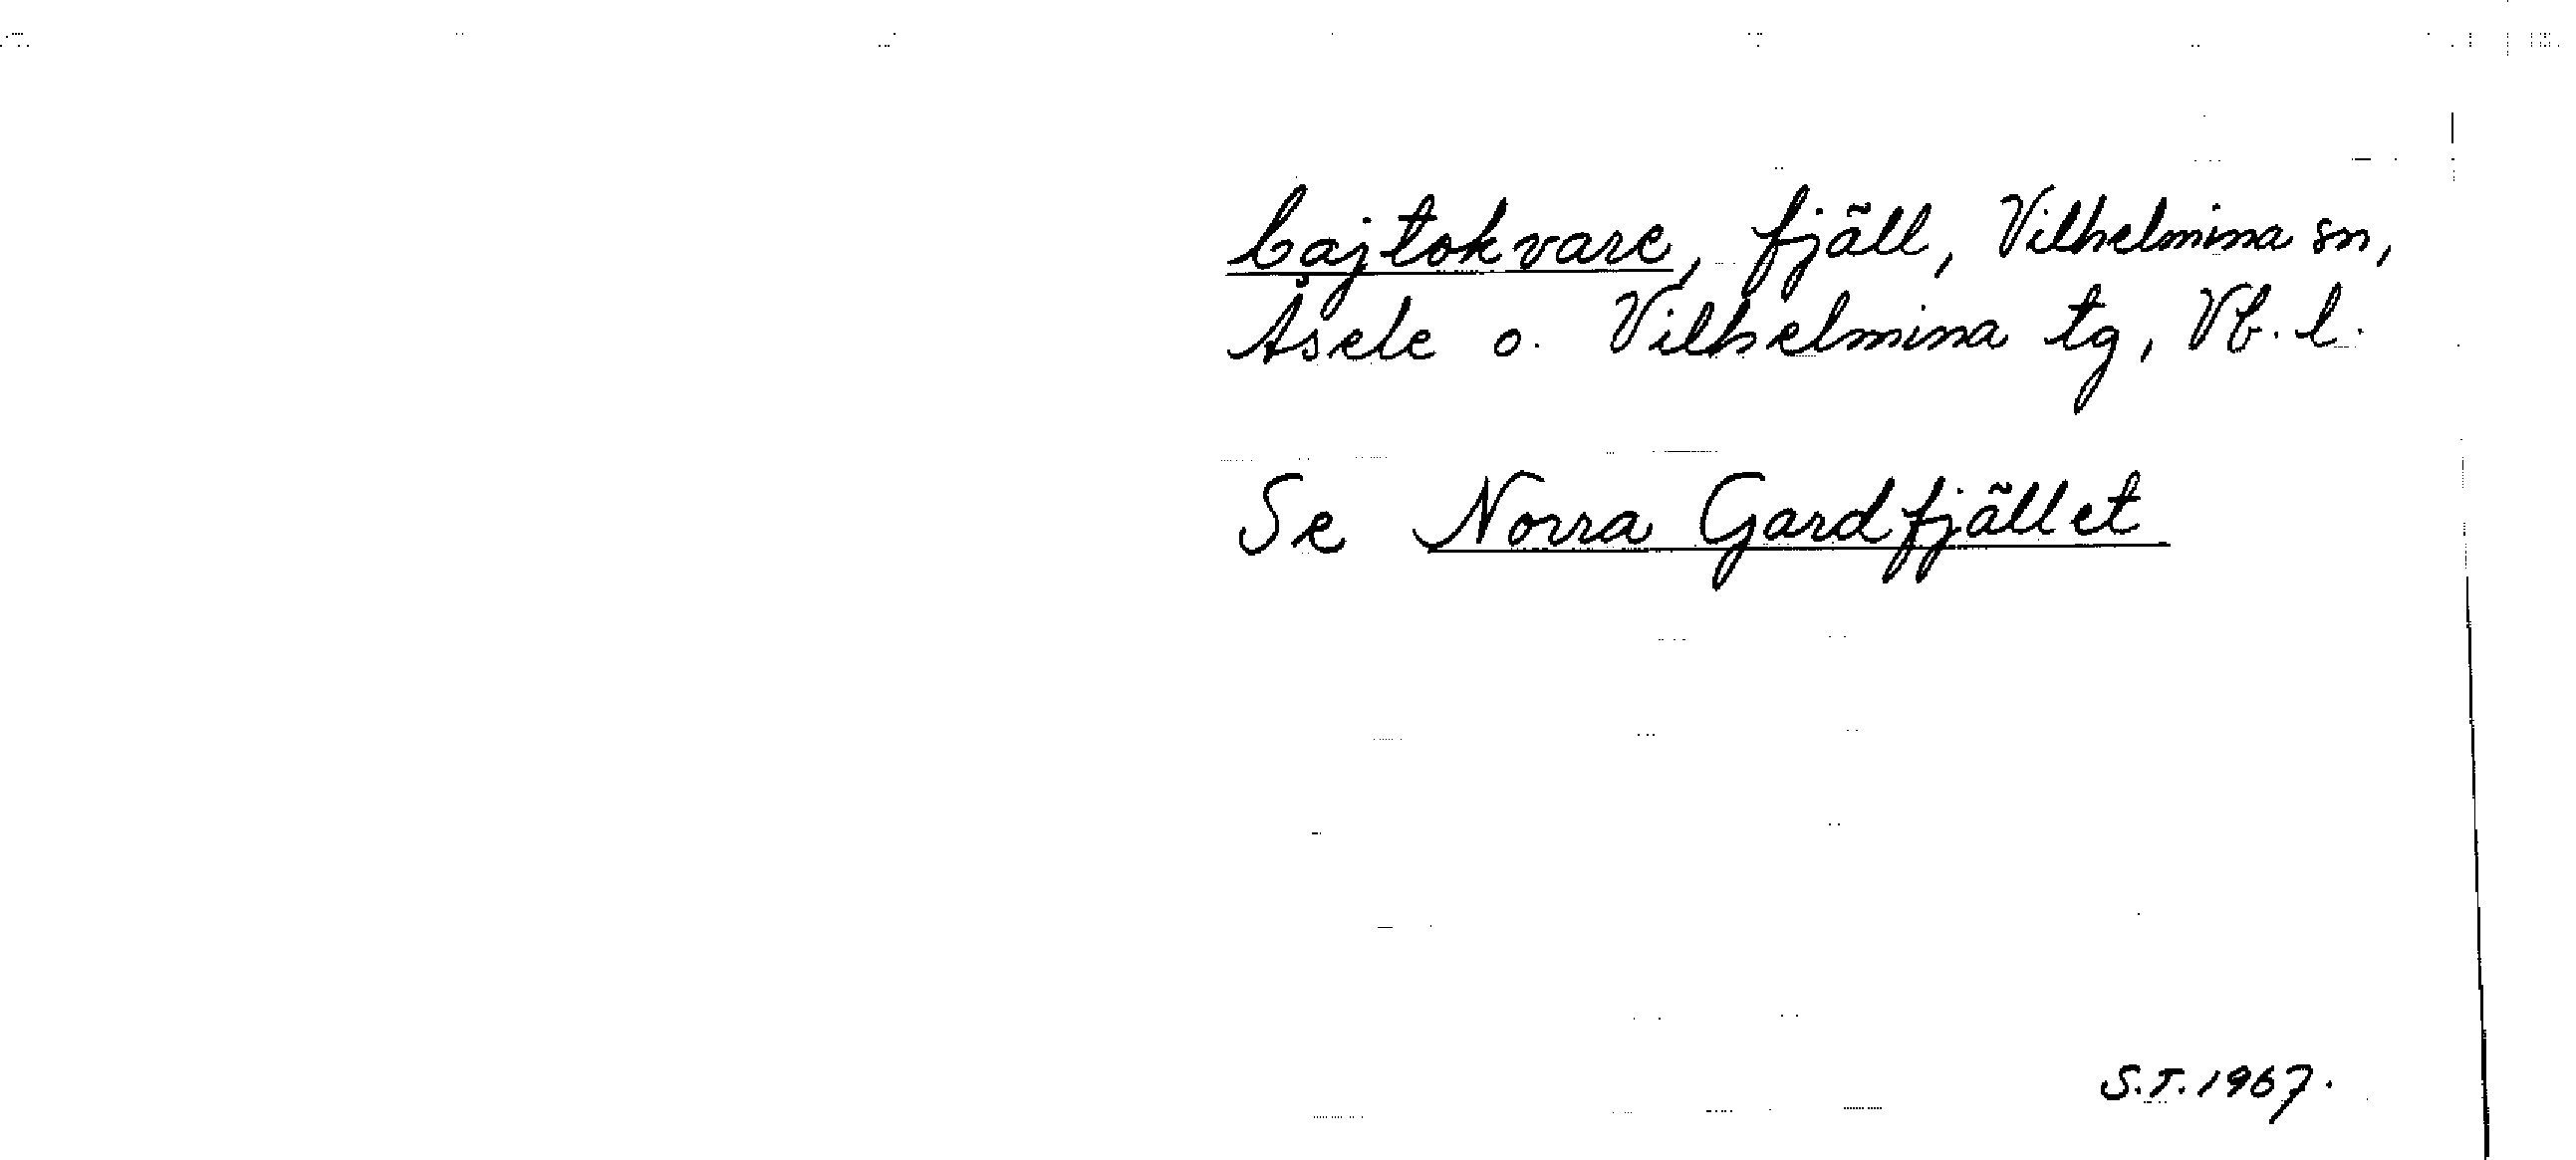 Cajtokvare, fjäll, Vilhelmina sn,
Åsele o. Vilhelmina tg, Vb. l.
Se Norra Gardfjället
S.T. 1967.